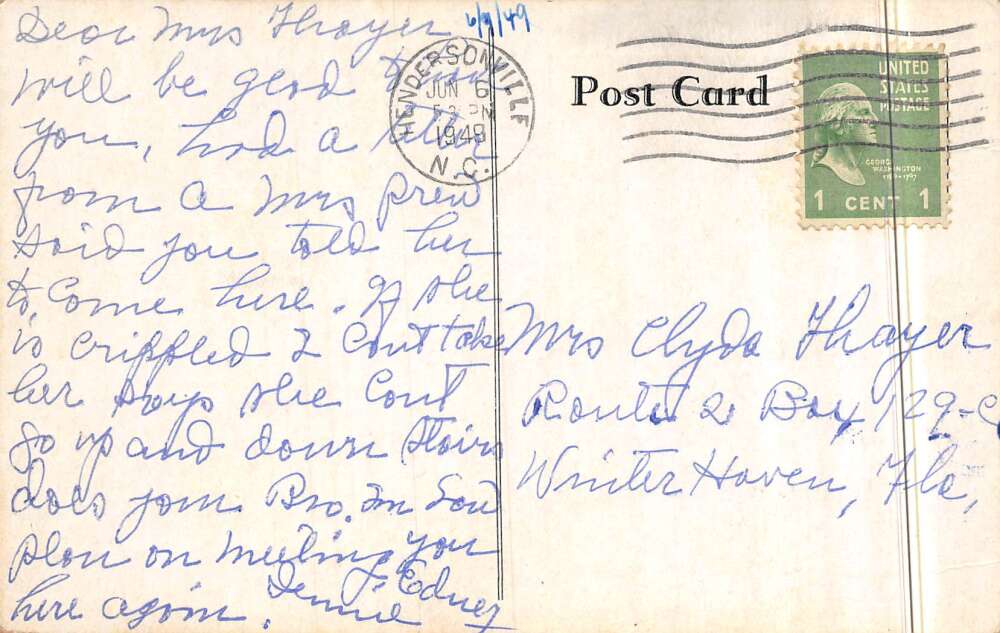 Dear Mrs Thayer
will be glad to see
you, had a letter
from a Mrs Prew
said you told her
to, come here. If she
is crippled I Cant take
her says she Cant
go up and down stairs
does your Bro. in Law
plan on meeting you
here again.
Jennie Edney
6/9/49
HENDERSONVILLE
JUN 6
PM
1949
N.C.
Post Card
UNITED
STATES
POSTAGE
GEORGE
WASHINGTON
1789-1797
1 CENT 1
Mrs Clyda Thayer
Route 2 Box 129-C
Winter Haven, Fla,